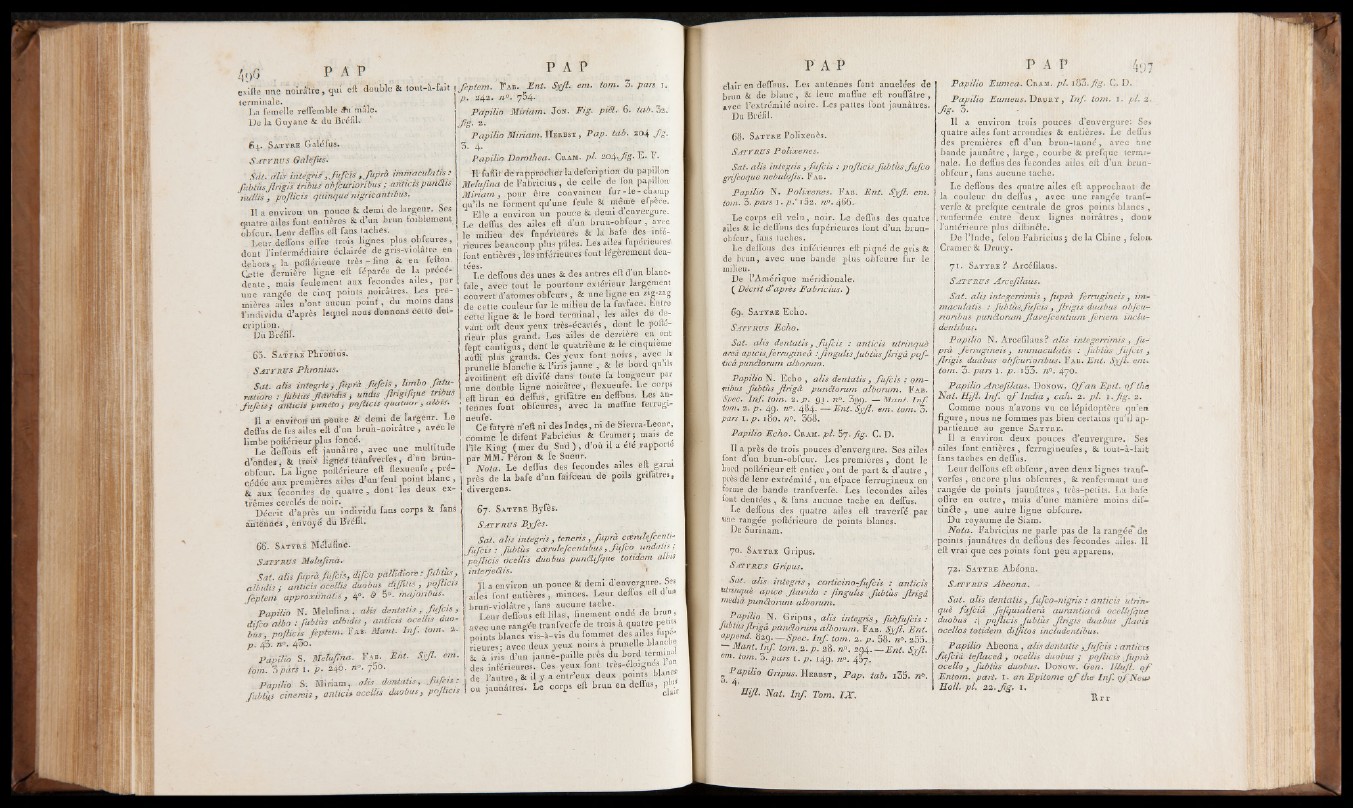 496 P A P
exiſte une noirâtre, qui eſt double & tout-à-fait
terminale.
La femelle reſſemble au mâle.
De la Guyane & du Bréſil.
64. Satyre Galéſus.
Satyrus Galeſus.
Sat. alis integris, fuſcis, ſuprà immaculatis :
ſubtùs ſtrigis tribus obſcurioribus : anticis punctis
nullis, poſticis quinque nigricantibus.
Il a environ un pouce & demi de largeur. Ses
quatre ailes ſont entières & d'un brun foiblement
obſcur. Leur deſſus eſt ſans taches.
Leur deſſous offre trois lignes plus obſcures,
dont l'intermédiaire éclairée de gris-violâtre en
dehors, la poſtérieure très-fine & en feſton.
Cette dernière ligne eſt ſéparée de la précé-
dente, mais ſeulement aux ſecondes ailes, par
une rangée de cinq points noirâtres. Les pre-
mières ailes n'ont aucun point, du moins dans
l'individu d'après lequel nous donnons cette deſ-
cription.
Du Bréſil.
65. Satyre Phronius.
Satyrus Phronius.
Sat. alis integris, ſuprà fuſcis, limbo ſatu-
ratiore : ſubtùs flavidis, undis ſtrigiſque tribus
fuſcis; anticis puncto, poſticis quatuor, albis.
Il a environ un pouce & demi de largeur. Le
deſſus de ſes ailes eſt d'un brun-noirâtre, avec le
limbe poſtérieur plus foncé.
Le deſſous eſt jaunâtre, avec une multitude
d'ondes, & trois lignes tranſverſes, d'un brun-
obſcur. La ligne poſtérieure eſt flexueuſe, pré-
cédée aux premières ailes d'un ſeul point blanc,
& aux ſecondes de quatre, dont les deux ex-
trêmes cerclés de noir.
Décrit d'après un individu ſans corps & ſans
antennes, envoyé du Bréſil.
66. Satyre Méluſine.
Satyrus Meluſina.
Sat. alis ſuprà fuſcis, diſco pallidiore : ſubtùs,
albidis; anticis ocellis duobus diſſitis, poſticis
ſeptem approximatis, 4°. & 5°. majoribus.
Papilio N. Meluſina, alis dentatis, fuſcis,
diſco albo : ſubtùs albidis, anticis ocellis duo-
bus, poſticis ſeptem. Fab. Mant. Inſ. tom. 2.
p. 43. n°. 430.
Papilio S. Meluſina. Fab. Ent. Syſt. em.
tom. 3. pars 1. p. 240. n°. 750.
Papilio S. Miriam, alis dentatis, fuſcis :
ſubtùs cinereis, anticis ocellis duobus, poſticis
P A P
ſeptem. Fab. Ent. Syſt. em. tom. 3. pars 1.
p. 242. n°. 754.
Papilio Miriam. Jon. Fig. pict. 6. tab. 32.
fig. 2.
Papilio Miriam. Herbst, Pap. tab. 204 fig.
3. 4.
Papilio Dorothea. Cram. pl. 204. fig. E. F.
Il ſuffit de rapprocher la deſcription du papillon
Meluſina de Fabricius, de celle de ſon papillon
Miriam, pour être convaincu ſur-le-champ
qu'ils ne forment qu'une ſeule & même eſpèce.
Elle a environ un pouce & demi d'envergure.
Le deſſus des ailes eſt d'un brun-obſcur, avec
le milieu des ſupérieures & la baſe des infé-
rieures beaucoup plus pâles. Les ailes ſupérieures
ſont entières, les inférieures ſont légèrement den-
tées.
Le deſſous des unes & des autres eſt d'un blanc-
ſale, avec tout le pourtour extérieur largement
couvert d'atomes obſcurs, & une ligne en zig-zag
de cette couleur ſur le milieu de la ſurface. Entre
cette ligne & le bord terminal, les ailes du de-
vant ont deux yeux très-écartés, dont le poſté-
rieur plus grand. Les ailes de derrière en ont
ſept contigus, dont le quatrième & le cinquième
auſſi plus grands. Ces yeux ſont noirs, avec la
prunelle blanche & l'iris jaune, & le bord qu'ils
avoiſinent eſt diviſé dans toute ſa longueur par
une double ligne noirâtre, flexueuſe. Le corps
eſt brun en deſſus, griſâtre en deſſous. Les an-
tennes ſont obſcures, avec la maſſue ferrugi-
neuſe.
Ce ſatyre n'eſt ni des Indes, ni de Sierra-Leone,
comme le diſent Fabricius & Cramer; mais de
l'île King (mer du Sud), d'où il a été rapporté
par MM. Péron & le Sueur.
Nota. Le deſſus des ſecondes ailes eſt garni
près de la baſe d'un faiſceau de poils griſâtres,
divergens.
67. Satyre Byſès.
Satyrus Byſes.
Sat. alis integris, teneris, ſuprà cœruleſcenti-
fuſcis : ſubtùs cœruleſcentibus, fuſco undatis;
poſticis ocellis duobus punctiſque totidem albis
interjectis.
Il a environ un pouce & demi d'envergure. Ses
ailes ſont entières, minces. Leur deſſus eſt d'un
brun-violâtre, ſans aucune tache.
Leur deſſous eſt lilas, finement ondé de brun,
avec une rangée tranſverſe de trois à quatre petits
points blancs vis-à-vis du ſommet des ailes ſupé-
rieures; avec deux yeux noirs à prunelle blanche
& à iris d'un jaune-paille près du bord terminal
des inférieures. Ces yeux ſont très-éloignés l'un
de l'autre, & il y a entr'eux deux points blancs
ou jaunâtres. Le corps eſt brun en deſſus, plus
clair
P A P
clair en deſſous. Les antennes ſont annelées de
brun & de blanc, & leur maſſue eſt rouſſâtre,
avec l'extrémité noire. Les pattes ſont jaunâtres.
Du Bréſil.
68. Satyre Polixenès.
Satyrus Polixenes.
Sat. alis integris, fuſcis : poſticis ſubtùs fuſco
griſeoque nebuloſis. Fab.
Papilio N. Polixenes. Fab. Ent. Syſt. em.
tom. 3. pars 1. p. 152. n°. 466.
Le corps eſt velu, noir. Le deſſus des quatre
ailes & le deſſous des ſupérieures ſont d'un brun-
obſcur, ſans taches.
Le deſſous des inférieures eſt piqué de gris &
de brun, avec une bande plus obſcure ſur le
milieu.
De l'Amérique méridionale.
( Décrit d'après Fabricius. )
69. Satyre Echo.
Satyrus Echo.
Sat. alis dentatis, fuſcis : anticis utrinquè
areâ apicis ferrugineâ : ſingulis ſubtùs ſtrigâ poſ-
ticâ punctorum alborum.
Papilio N. Echo, alis dentatis, fuſcis : om-
nibus ſubtùs ſtrigâ punctorum alborum. Fab.
Spec. Inſ. tom. 2. p. 91. n°. 399. — Mant. Inſ.
tom. 2. p. 49. n°. 484. — Ent. Syſt. em. tom. 3.
pars 1. p. 180. n°. 368.
Papilio Echo. Cram. pl. 57. fig. C. D.
Il a près de trois pouces d'envergure. Ses ailes
ſont d'un brun-obſcur. Les premières, dont le
bord poſtérieur eſt entier, ont de part & d'autre,
près de leur extrémité, un eſpace ferrugineux en
forme de bande tranſverſe. Les ſecondes ailes
ſont dentées, & ſans aucune tache en deſſus.
Le deſſous des quatre ailes eſt traverſé par
une rangée poſtérieure de points blancs.
De Surinam.
70. Satyre Gripus.
Satyrus Gripus.
Sat. alis integris, corticino-fuſcis : anticis
utrinquè apice flavido : ſingulis ſubtùs ſtrigâ
mediâ punctorum alborum.
Papilio N. Gripus, alis integris, ſubfuſcis :
ſubtùs ſtrigâ punctorum alborum. Fab. Syſt. Ent.
append. 829. — Spec. Inſ. tom. 2. p. 58. n°. 255.
— Mant. Inſ. tom. 2. p. 28. n°. 294. — Ent. Syſt.
em. tom. 3. pars 1. p. 149. n°. 457.
Papilio Gripus. Herbst, Pap. tab. 135. n°.
3. 4.
Hiſt. Nat. Inſ. Tom. IX.
P A P 497
Papilio Eumea. Cram. pl. 183. fig. C. D.
Papilio Eumeus. Drury, Inſ. tom. 1. pl. 2.
fig. 3.
Il a environ trois pouces d'envergure. Ses
quatre ailes ſont arrondies & entières. Le deſſus
des premières eſt d'un brun-tanné, avec une
bande jaunâtre, large, courbe & preſque termi-
nale. Le deſſus des ſecondes ailes eſt d'un brun-
obſcur, ſans aucune tache.
Le deſſous des quatre ailes eſt approchant de
la couleur du deſſus, avec une rangée tranſ-
verſe & preſque centrale de gros points blancs,
renfermée entre deux lignes noirâtres, dont
l'antérieure plus diſtincte.
De l'Inde, ſelon Fabricius; de la Chine, ſelon
Cramer & Drury.
71. Satyre ? Arcéſilaus.
Satyrus Arceſilaus.
Sat. alis integerrimis, ſuprà ferrugineis, im-
maculatis : ſubtùs fuſcis, ſtrigis duabus obſcu-
rioribus punctorum flaveſcentium ſeriem inclu-
dentibus.
Papilio N. Arceſilaus? alis integerrimis, ſu-
prà ferrugineis, immaculatis : ſubtùs fuſcis,
ſtrigis duabus obſcurioribus. Fab. Ent. Syſt. em.
tom. 3. pars 1. p. 153. n°. 470.
Papilio Arceſilaus. Donow. Of an Epit. of the
Nat. Hiſt. Inſ. of India, cah. 2. pl. 1. fig. 2.
Comme nous n'avons vu ce lépidoptère qu'en
figure, nous ne ſommes pas bien certains qu'il ap-
partienne au genre Satyre.
Il a environ deux pouces d'envergure. Ses
ailes ſont entières, ferrugineuſes, & tout-à-fait
ſans taches en deſſus.
Leur deſſous eſt obſcur, avec deux lignes tranſ-
verſes, encore plus obſcures, & renfermant une
rangée de points jaunâtres, très-petits. La baſe
offre en outre, mais d'une manière moins diſ-
tincte, une autre ligne obſcure.
Du royaume de Siam.
Nota. Fabricius ne parle pas de la rangée de
points jaunâtres du deſſous des ſecondes ailes. Il
eſt vrai que ces points ſont peu apparens.
72. Satyre Abéona.
Satyrus Abeona.
Sat. alis dentatis, fuſco-nigris : anticis utrin-
què faſciâ ſeſquialterâ aurantiacâ ocelliſque
duobus : poſticis ſubtùs ſtrigis duabus flavis
ocellos totidem diſſitos includentibus.
Papilio Abeona, alis dentatis, fuſcis : anticis
faſciâ teſtaceâ, ocellis duobus; poſticis ſuprà
ocello, ſubtùs duobus. Donow. Gen. Illuſt. of
Entom. part. 1. an Epitome of the Inſ. of New
Holl. pl. 22. fig. 1.
Rrr